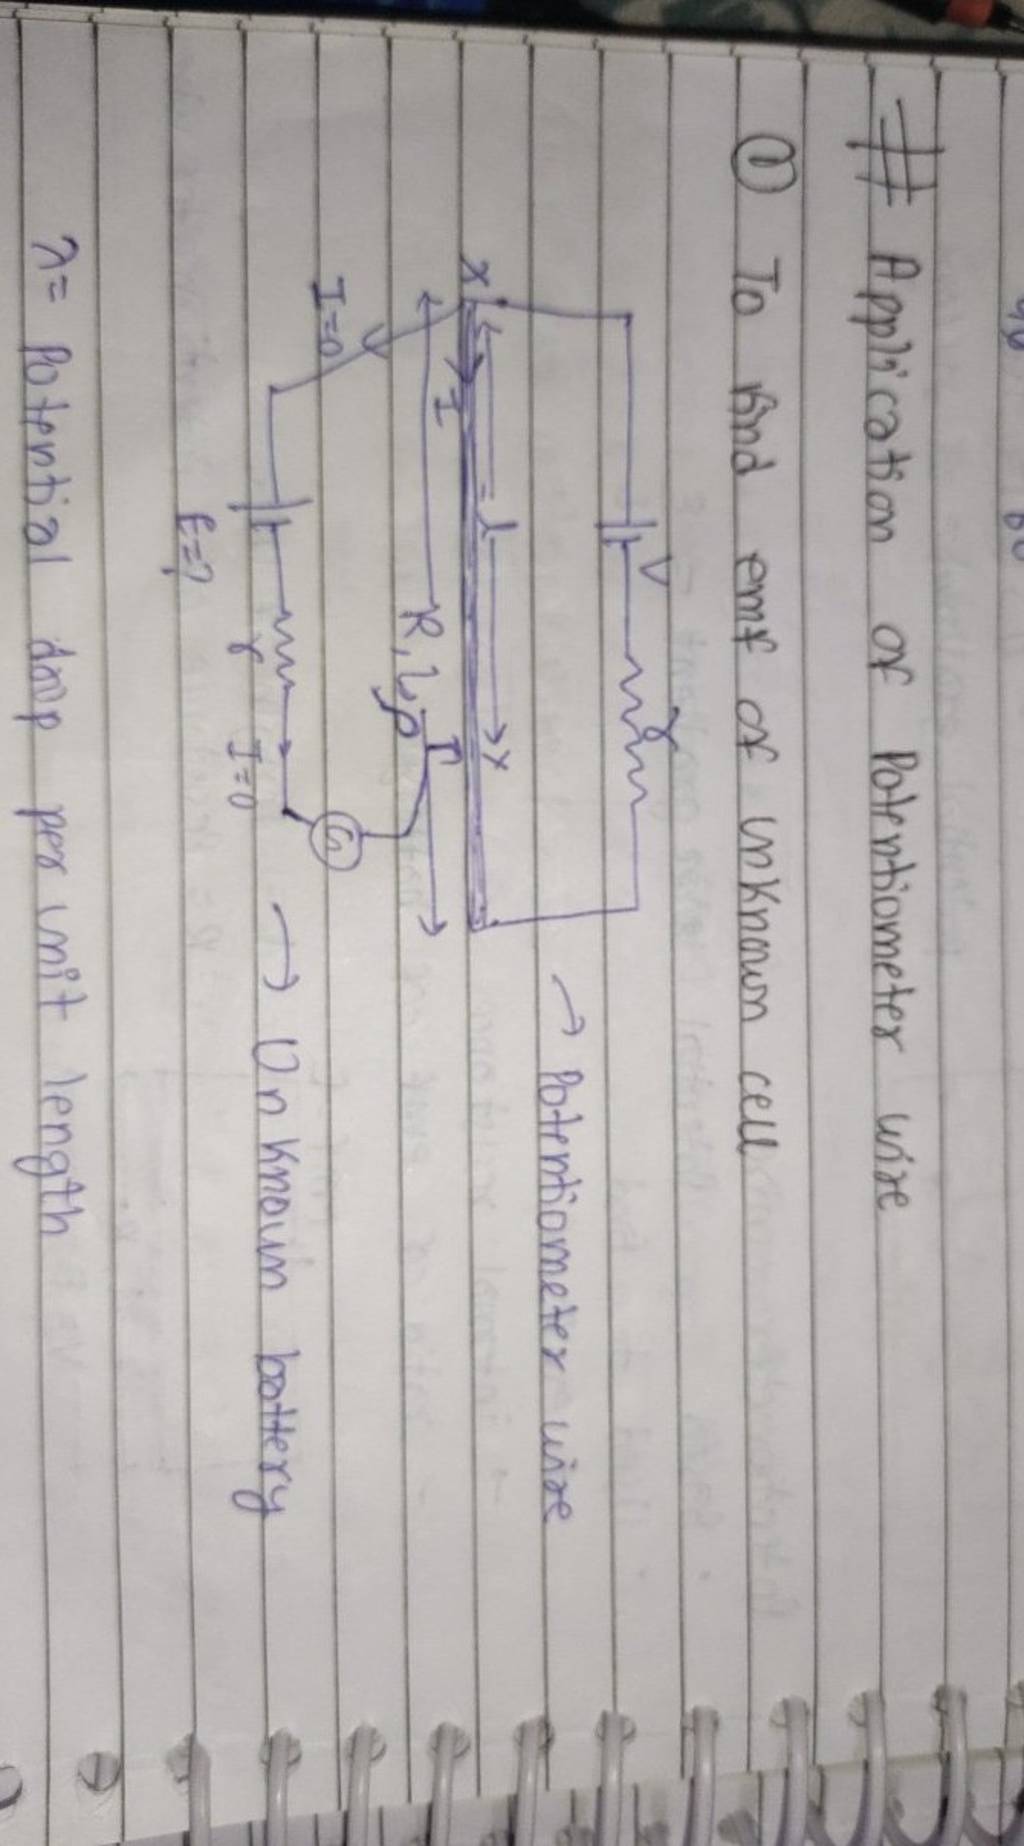 # Application of Potentiometer wire
① To find emf of unknown cell
V
r
→ Potentiometer wire
X
l
Y
I
R, L, ρ
I=0
G
E=?
r
I=0
→ Unknown battery
λ= Potential drop per unit length